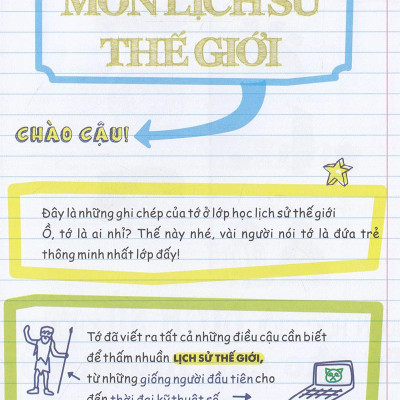 MÔN LỊCH SỬ
THẾ GIỚI
CHÀO CẬU!
Đây là những ghi chép của tớ ở lớp học lịch sử thế giới
Ồ, tớ là ai nhỉ? Thế này nhé, vài người nói tớ là đứa trẻ
thông minh nhất lớp đấy!
Tớ đã viết ra tất cả những điều cậu cần biết
để thấm nhuần LỊCH SỬ THẾ GIỚI,
từ những giống người đầu tiên cho
đến thời đại kỹ thuật số.